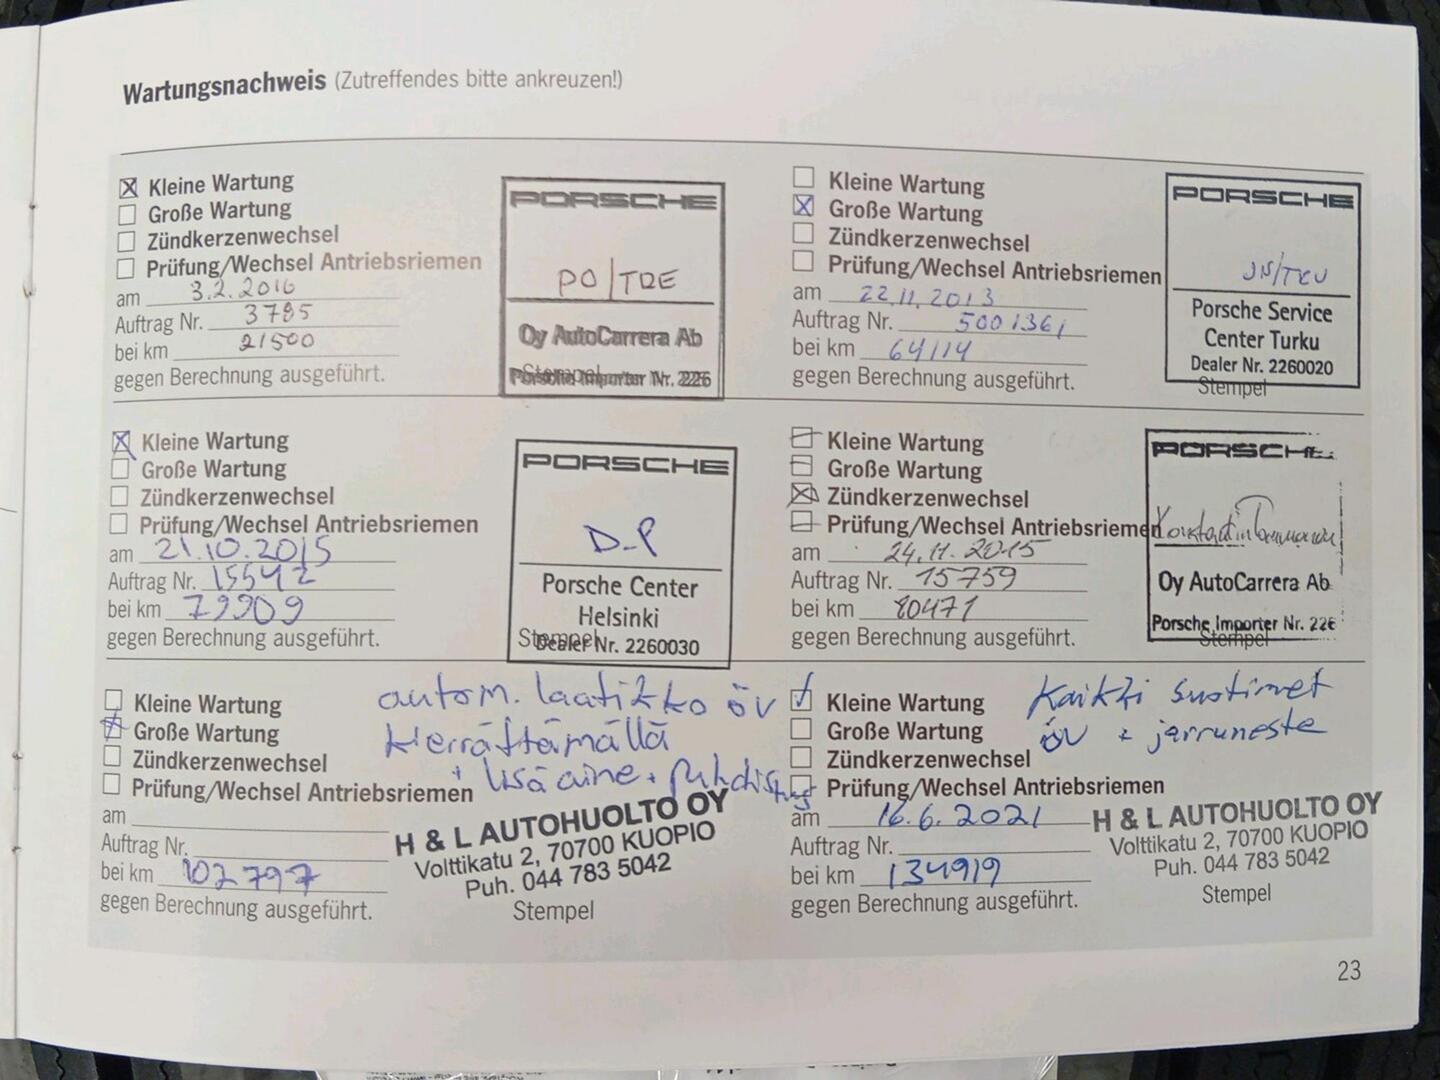 Wartungsnachweis (Zutreffendes bitte ankreuzen!)
Kleine Wartung
Große Wartung
Zündkerzenwechsel
Prüfung/Wechsel Antriebsriemen
am 3.2.2010
Auftrag Nr. 3785
bei km 21500
gegen Berechnung ausgeführt.
PORSCHE
PO/TRE
Oy AutoCarrera Ab
Porsche Importer Nr. 226
Stempel
Kleine Wartung
Große Wartung
Zündkerzenwechsel
Prüfung/Wechsel Antriebsriemen
am 22.11.2013
Auftrag Nr. 5001361
bei km 64114
gegen Berechnung ausgeführt.
PORSCHE
JN/TKU
Porsche Service
Center Turku
Dealer Nr. 2260020
Stempel
Kleine Wartung
Große Wartung
Zündkerzenwechsel
Prüfung/Wechsel Antriebsriemen
am 21.10.2015
Auftrag Nr. 15542
bei km 79909
gegen Berechnung ausgeführt.
PORSCHE
D-P
Porsche Center
Helsinki
Dealer Nr. 2260030
Stempel
Kleine Wartung
Große Wartung
Zündkerzenwechsel
Prüfung/Wechsel Antriebsriemen
am 24.11.2015
Auftrag Nr. 15759
bei km 80471
gegen Berechnung ausgeführt.
PORSCHE
Oy AutoCarrera Ab
Porsche Importer Nr. 226
Stempel
Kleine Wartung
Große Wartung
Zündkerzenwechsel
Prüfung/Wechsel Antriebsriemen
am
Auftrag Nr.
bei km 102797
gegen Berechnung ausgeführt.
autom. laatikko öv
kierrättämällä
+ lisäaine + puhdistus
H & L AUTOHUOLTO OY
Volttikatu 2, 70700 KUOPIO
Puh. 044 783 5042
Stempel
Kleine Wartung
Große Wartung
Zündkerzenwechsel
Prüfung/Wechsel Antriebsriemen
am 16.6.2021
Auftrag Nr.
bei km 134919
gegen Berechnung ausgeführt.
Kaikki suotimet
öv + jarruneste
H & L AUTOHUOLTO OY
Volttikatu 2, 70700 KUOPIO
Puh. 044 783 5042
Stempel
23